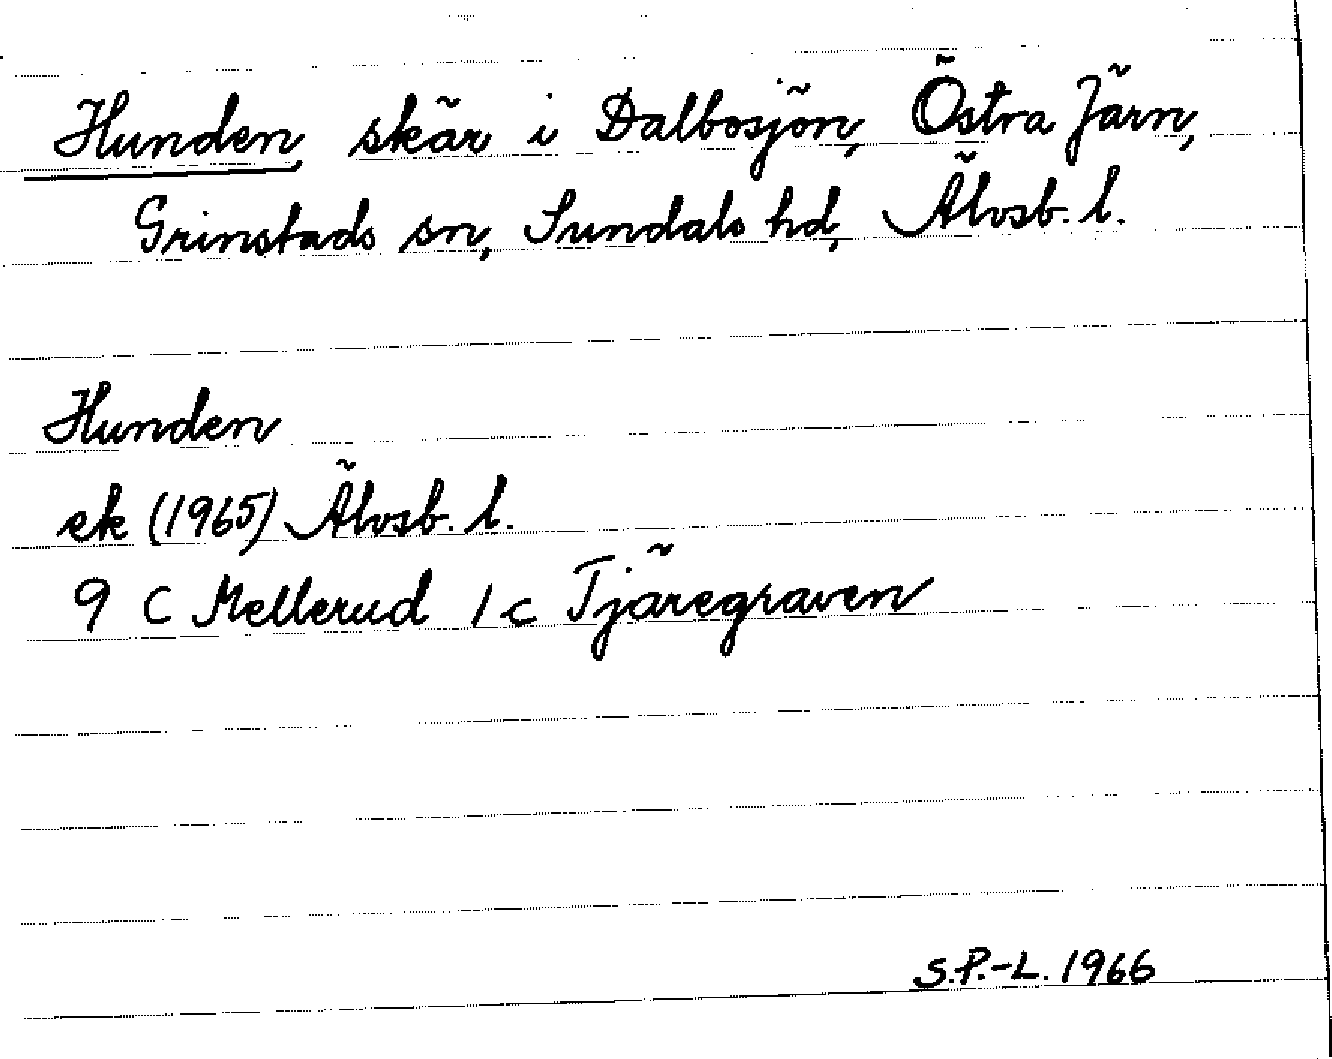 Hunden, skär i Dalbosjön, Östra Järn,
Grinstads sn, Sundals hd, Älvsb. l.
Hunden
ek (1965) Älvsb. l.
9 C Mellerud 1 c Tjäregraven
S.P.-L. 1966